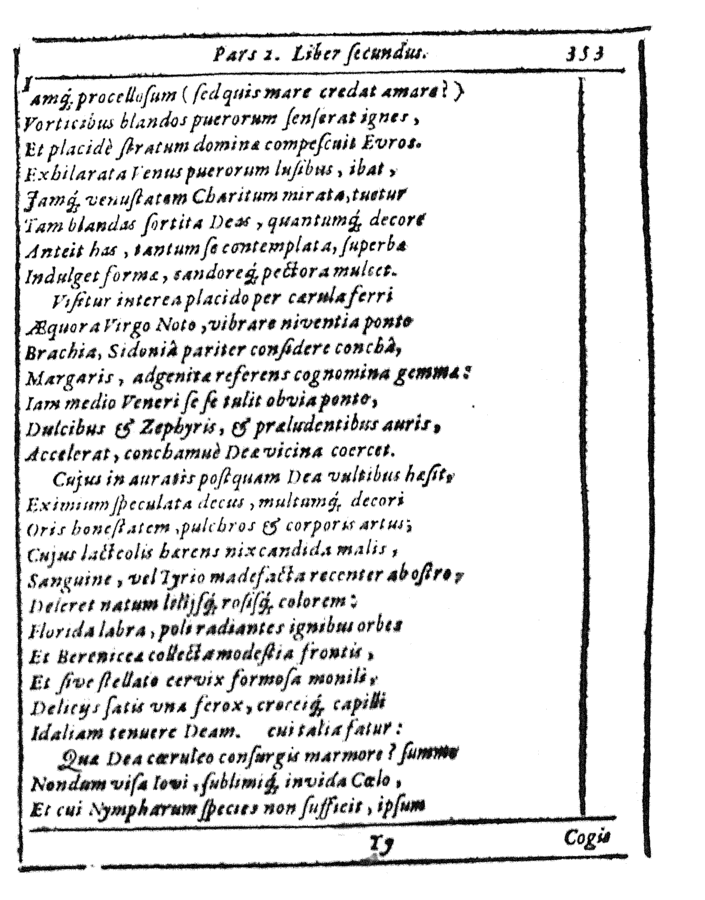 Pars 2. Liber ſecundus. 353
Iamq́; procelloſum (ſed quis mare credat amare?)
Vorticibus blandos puerorum ſenſerat ignes,
Et placidè ſtratum domina compeſcuit Evros.
Exhilarata Venus puerorum luſibus, ibat,
Jamq́; venuſtatem Charitum mirata, tuetur
Tam blandas ſortita Deas, quantumq́; decore
Anteit has, tantum ſe contemplata, ſuperba
Indulget formæ, candoreq́; pectora mulcet.
Viſitur interea placido per cærula ferri
Æquora Virgo Noto, vibrare niventia ponto
Brachia, Sidoniâ pariter conſidere conchâ,
Margaris, adgenitæ referens cognomina gemmæ:
Iam medio Veneri ſe ſe tulit obvia ponto,
Dulcibus & Zephyris, & præludentibus auris,
Accelerat, conchamuè Dea vicina coercet.
Cujus in auratis poſtquam Dea vultibus hæſit,
Eximium ſpeculata decus, multumq́; decori
Oris honeſtatem, pulchros & corporis artus;
Cujus lacteolis hærens nix candida malis,
Sanguine, vel Tyrio madefacta recenter ab oſtro,
Deieret natum lilijſq́; roſiſq́; colorem:
Florida labra, poli radiantes ignibus orbes
Et Berenicea collectæ modeſtia frontis,
Et ſive ſtellato cervix formoſa monili,
Delicijs ſatis vna ferox, croceiq́; capilli
Idaliam tenuere Deam. cui talia fatur:
Quæ Dea cœruleo conſurgis marmore? ſummo
Nondum viſa Iovi, ſublimiq́; invida Cœlo,
Et cui Nympharum ſpecies non ſufficit, ipſum
19 Cogis